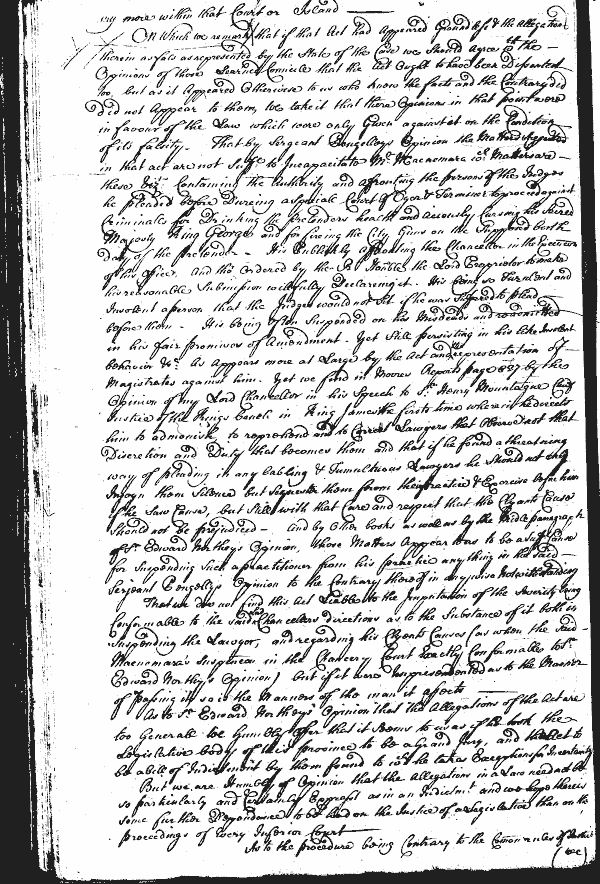 any more within that Court or Island
On Which we remark that if that Act had Appeared Groundless & the Allegations
therein as fals as represented by the State of the Case we should Agree to the
Opinions of those Learned Councile that the Act Ought to have been Dissented
too, but as it Appeared Otherwise to us who know the facts and the Contrary did
did not Appear to them, We take it that there Opinions in that point were
in favour of the Law which were only Given against it on the Condition
of its falsity. That by Sergeant Pengellys Opinion the Matters Alledged
in that act are not Suff.t to Incapacitate Mr. Macnemara wch. Matters are
these Viz.t Containing the Authority and affronting the persons of the Judges
he pleaded before Dureing a Speciale Court of Oyer & Terminer to proceed against
Criminalls for Drinking the Pretenders health and Accusly Cursing his Sacred
Majesty King George and for fireing the City Guns on the Supposed birth
Day of the Pretender. His Publickly affronting the Chancellor in the Execution
of his Office. And tho Ordered by the Rt. Honble the Lord Proprietor to make
his reasonable Submission wilfully Declareing it. His being so Turbulent and
Insolent a person that the Judges would not Sit if he was Suffered to plead
before them. His being Often Suspended on his Misdeeds and readmitted
in his fair promises of Amendment. Yet Still persisting in his like Insolent
behavior &c. As Appears more at Large by the Act and representation of
Magistrates against him. Yet we find in Moores Reports page 827 by the
Opinion of my Lord Chancellor in his Speech to Sr. Henry Mountague Chief
Justice of the Kings bench in King James the firsts time wherein he directs
him to admonish, to reprehend and to Correct Lawyers that Observe not that
Discretion and Duty that becomes them and that if he found a threatning
way of pleading in any babling & Tumultuous Lawyers he Should not only
Injoyn them Silence but Sequester them from their practice & Exercise before him
of the Law Cause, but Still with that Care and respect that the Clyants Cause
Should not be prejudiced and by Other books as well as by the Middle paragraph
of Sr. Edward Northeys Opinion, those Matters Appear to us to be a Suff.t Cause
for Suspending Such a practitioner from his practice any thing in the said
Serjeant Pengellys Opinion to the Contrary thereof in any wise Notwithstanding
That we do not find this Act Liable to the Imputation of the Severity being
Conformable to the said Chancellors directions as to the Substance of it both in
Suspending the Lawyer, and regarding his Clyants Causes (as when the said
Macnemara's Suspencon in the Chancery Court Exactly Conformable to Sr.
Edward Northeys Opinion) but if it was Unprecedented as to the Manner
of passing it so is the Manners of the man it affects
As to Sr. Edward Northeys Opinion that the Allegations of the Act are
too Generale We Humbly Offer that it Seems to us as if he took the
Legislative body of this province to be a Grand Jury, and the Act to
be a bill of Indictment by them found to wch. he takes Exceptions for Incertainty
But we are Humbly of Opinion that the Allegations in a Law need not be
so particularly and Certainly Exprest as in an Indictmt. and we hope there is
some further Dependance to be had on the Justice of a Legislative than on the
proceedings of Every Inferior Court
As to the procedure being Contrary to the Comon rules of Justice
(we)